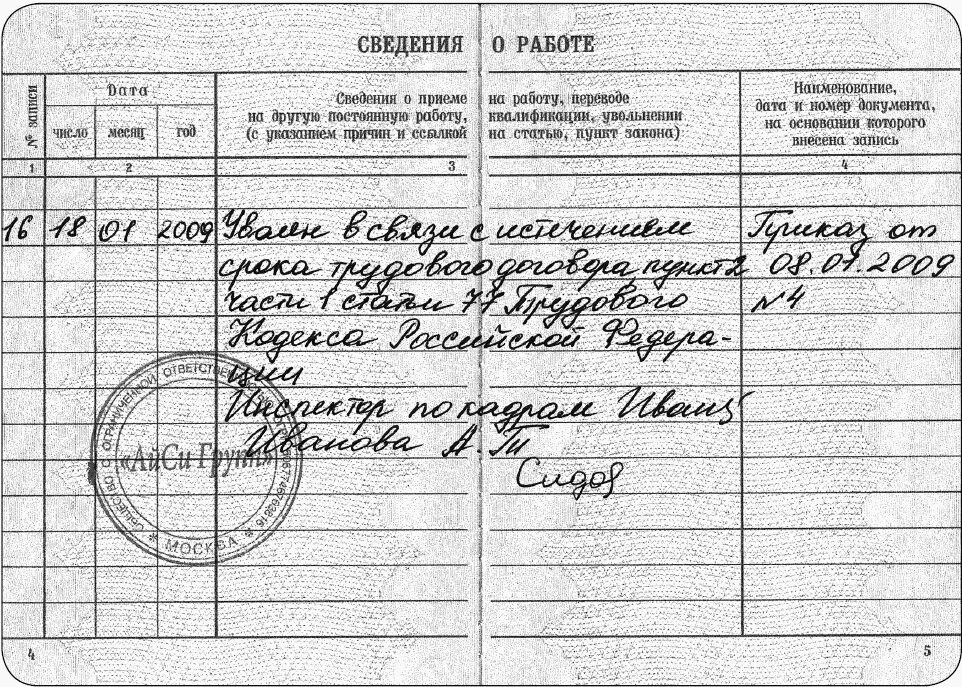 СВЕДЕНИЯ О РАБОТЕ
№ записи
Дата
число месяц год
Сведения о приеме на работу, переводе
на другую постоянную работу, квалификации, увольнении
(с указанием причин и ссылкой на статью, пункт закона)
Наименование,
дата и номер документа,
на основании которого
внесена запись
1 2 3 4
16 18 01 2009 Уволен в связи с истечением Приказ от
срока трудового договора пункт 2 08.01.2009
части 1 статьи 77 Трудового №4
Кодекса Российской Федера-
ции
Инспектор по кадрам Иванц
Иванова А. Т
Сидор
ОБЩЕСТВО С ОГРАНИЧЕННОЙ ОТВЕТСТВЕННОСТЬЮ
«АйСи Групп»
* МОСКВА *
4 5